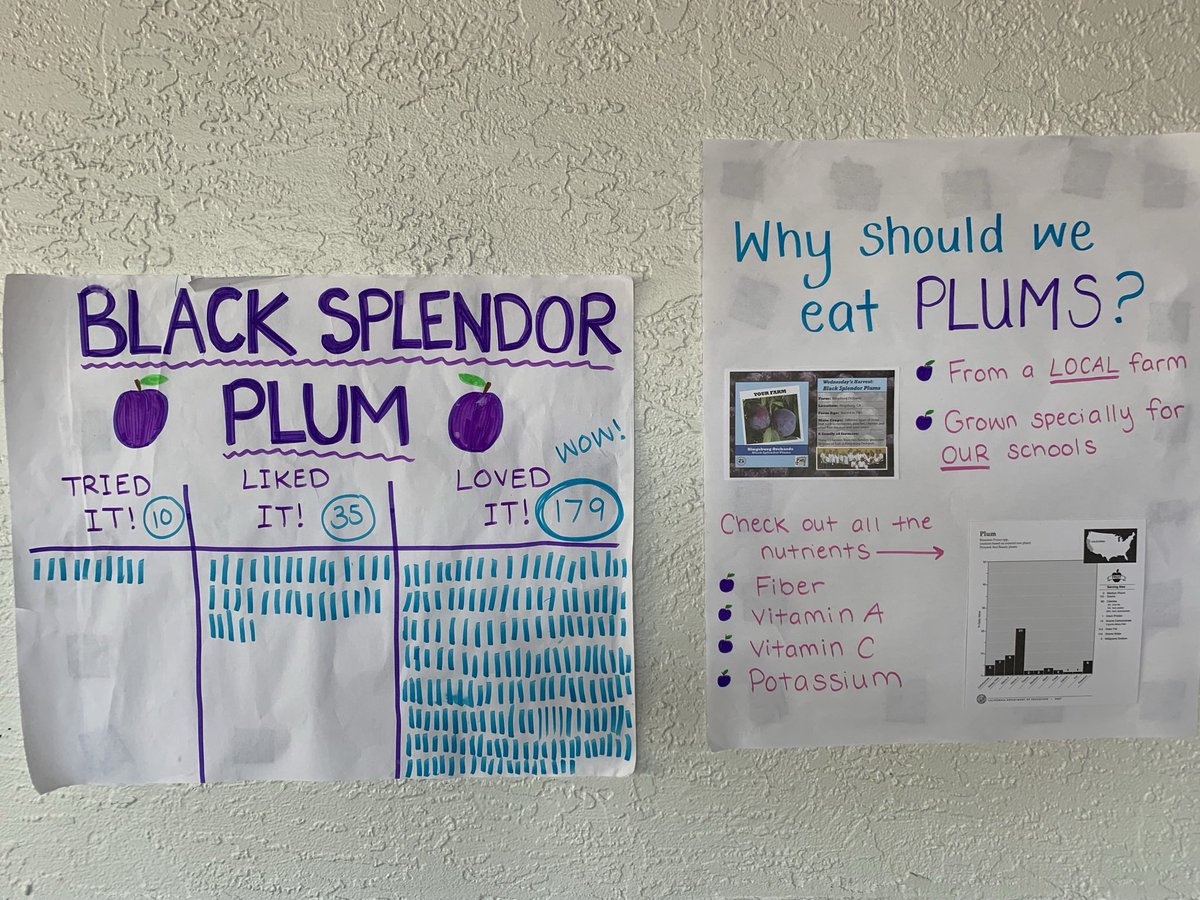 BLACK SPLENDOR
PLUM
WOW!
TRIED
IT! 10
LIKED
IT! 35
LOVED
IT! 179
Why should we
eat PLUMS?
YOUR FARM
Wednesday's Harvest:
Black Splendor Plums
From a LOCAL farm
Grown specially for
OUR schools
Check out all the
nutrients
Fiber
Vitamin A
Vitamin C
Potassium
Plum
CALIFORNIA DEPARTMENT OF EDUCATION